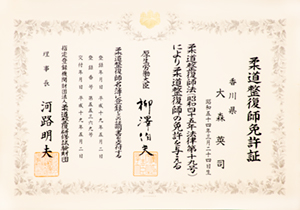 柔道整復師免許証
香川県
大森英司
昭和五十四年三月二十四日生
柔道整復師法(昭和四十五年法律第十九号)
により柔道整復師の免許を与える
厚生労働大臣
柳澤伯久
柔道整復師名簿に登録したことを証明する
登録年月日 平成十九年五月二日
交付年月日 平成十九年五月二日
指定登録機関財団法人柔道整復研修試験財団
理事長
河路明夫